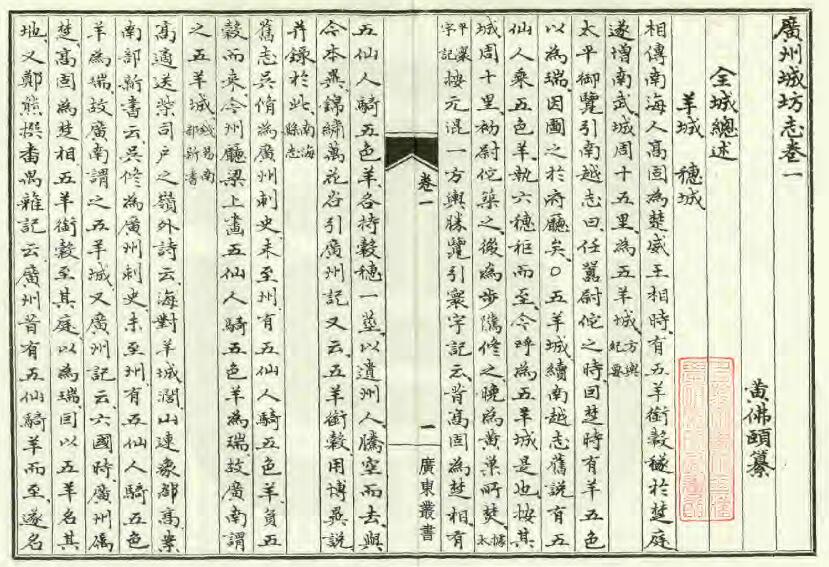 廣州城坊志卷一
黃佛頤纂
全城總述
羊城 穗城
相傳南海人高固為楚威王相時有五羊銜穀穟於楚庭
遂增南武城周十五里為五羊城方輿紀要
太平御覽引南越志曰任囂尉佗之時因楚時有羊五色
以為瑞因圖之於府廳矣○五羊城續南越志舊說有五
仙人乘五色羊執六穗秬而至今呼為五羊城是也按其
城周十里初尉佗築之後為步隲修之晚為黃巢所焚太平寰
宇記按元混一方輿勝覽引寰宇記云昔高固為楚相有
卷一
一
廣東叢書
五仙人騎五色羊各持穀穗一莖以遺州人騰空而去與
今本異錦繡萬花谷引廣州記又云五羊銜穀用博異說
并錄於此南海縣志
舊志吳脩為廣州刺史未至州有五仙人騎五色羊負五
穀而來今州廳梁上畫五仙人騎五色羊為瑞故廣南謂
之五羊城錢易南部新書
高適送柴司戶之嶺外詩云海對羊城濶山連象郡高案
南部新書云吳修為廣州刺史未至州有五仙人騎五色
羊為瑞故廣南謂之五羊城又廣州記云六國時廣州屬
楚高固為楚相五羊銜穀至其庭以為瑞因以五羊名其
地又鄭熊撰番禺雜記云廣州昔有五仙騎羊而至遂名